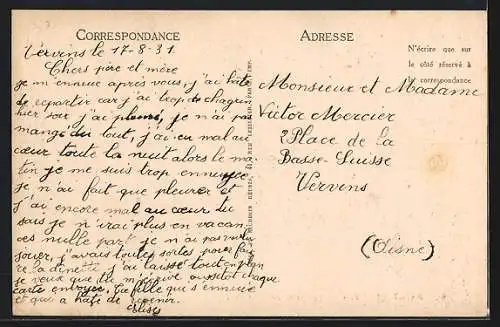 CORRESPONDANCE
Vervins le 17-8-31
Chers père et mère
je m'ennuie après vous, j'ai hâte
de repartir car j'ai trop de chagrin
hier soir, j'ai pleuré, je n'ai pas
mangé du tout, j'ai eu mal au
cœur toute la nuit alors le ma-
tin je me suis trop ennuyée
je n'ai fait que pleurer et
j'ai encore mal au cœur tu
sais je n'irai plus en vacan-
ces nulle part je n'ai pas voulu
jouer, j'avais toutes sortes pour fai-
re la dinette j'ai laissé tout en plan
je veux que tu m'écrive aussitot chaque
carte envoyée, ta fille qui s'ennuie
et qui a hâte de revenir.
ADRESSE
N'écrire que sur
le côté réservé à
la correspondance
Monsieur et Madame
Victor Mercier
2 Place de la
Basse-Suisse
Vervins
(Aisne)